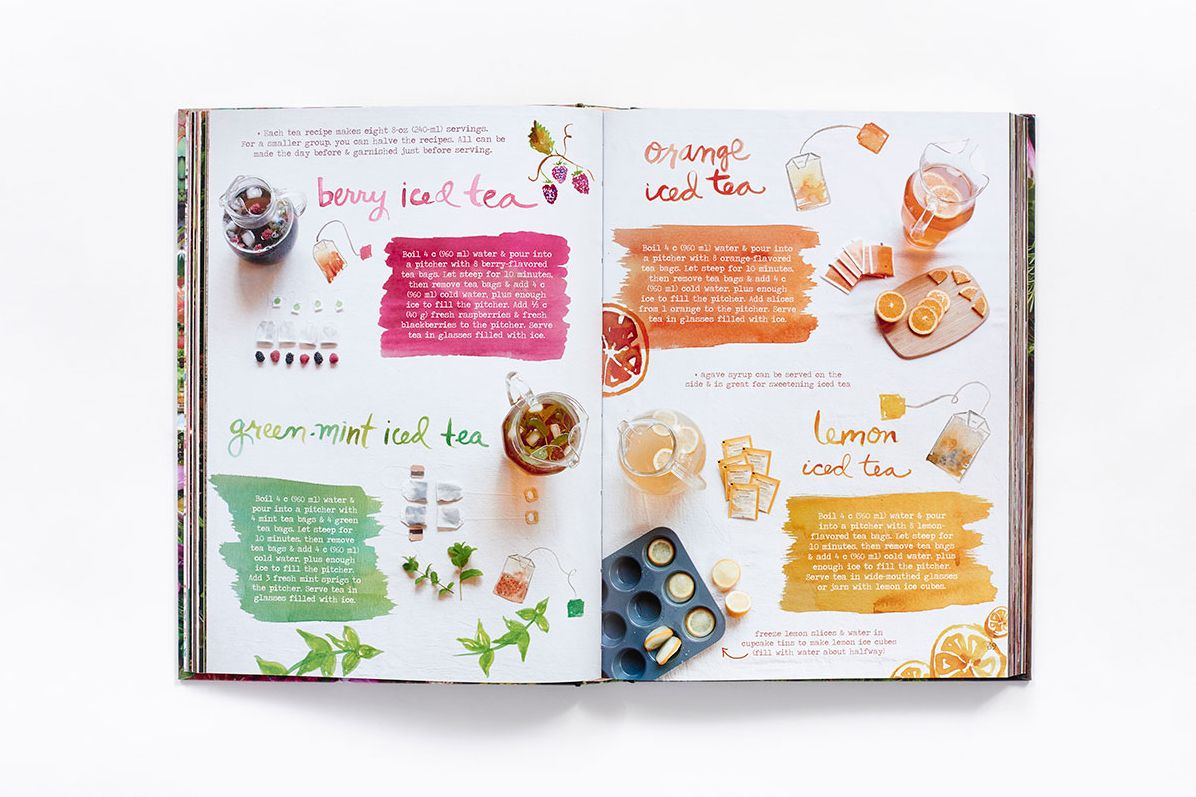 • Each tea recipe makes eight 8-oz (240-ml) servings.
For a smaller group, you can halve the recipes. All can be
made the day before & garnished just before serving.
berry iced tea
Boil 4 c (960 ml) water & pour into
a pitcher with 8 berry-flavored
tea bags. Let steep for 10 minutes,
then remove tea bags & add 4 c
(960 ml) cold water, plus enough
ice to fill the pitcher. Add ⅓ c
(40 g) fresh raspberries & fresh
blackberries to the pitcher. Serve
tea in glasses filled with ice.
green-mint iced tea
Boil 4 c (960 ml) water &
pour into a pitcher with
4 mint tea bags & 4 green
tea bags. Let steep for
10 minutes, then remove
tea bags & add 4 c (960 ml)
cold water, plus enough
ice to fill the pitcher.
Add 3 fresh mint sprigs to
the pitcher. Serve tea in
glasses filled with ice.
orange
iced tea
Boil 4 c (960 ml) water & pour into
a pitcher with 8 orange-flavored
tea bags. Let steep for 10 minutes,
then remove tea bags & add 4 c
(960 ml) cold water, plus enough
ice to fill the pitcher. Add slices
from 1 orange to the pitcher. Serve
tea in glasses filled with ice.
• agave syrup can be served on the
side & is great for sweetening iced tea
lemon
iced tea
Boil 4 c (960 ml) water & pour
into a pitcher with 8 lemon-
flavored tea bags. Let steep for
10 minutes, then remove tea bags
& add 4 c (960 ml) cold water, plus
enough ice to fill the pitcher.
Serve tea in wide-mouthed glasses
or jars with lemon ice cubes.
freeze lemon slices & water in
cupcake tins to make lemon ice cubes
(fill with water about halfway)